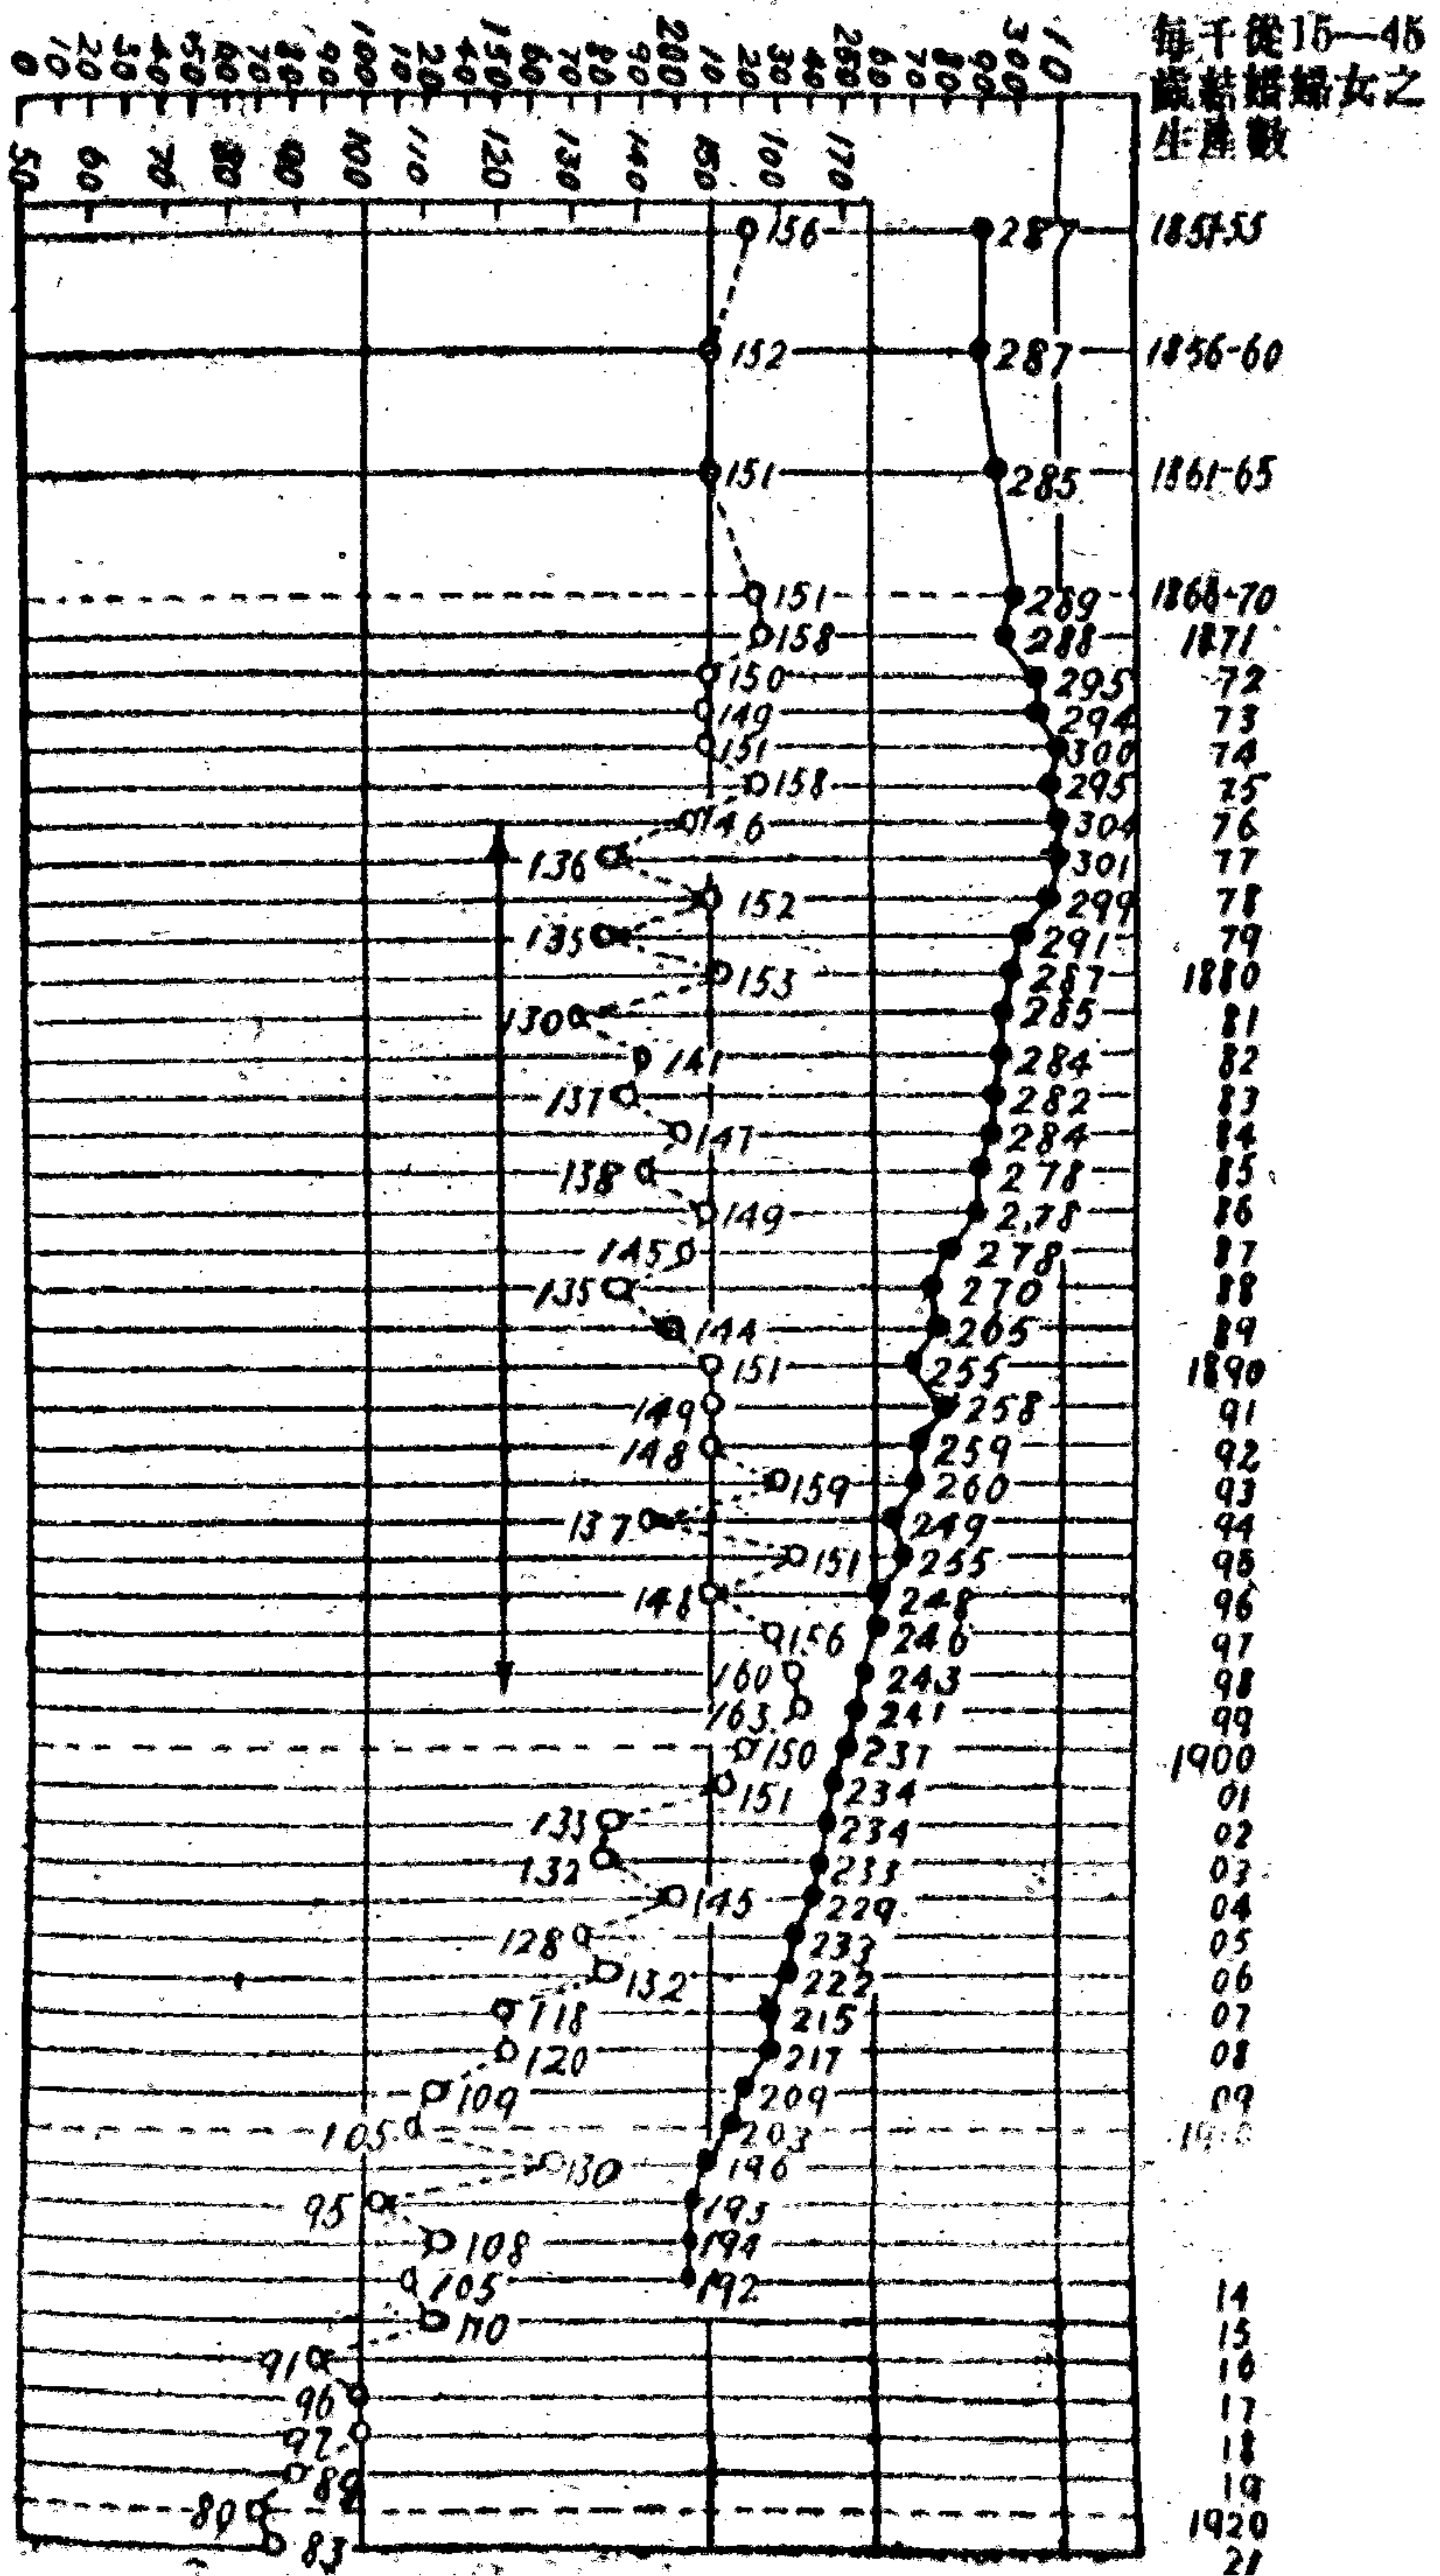 0 10 20 30 40 50 60 70 80 90 100 10 20 30 40 150 60 70 80 90 200 10 20 30 40 250 60 70 80 90 300 10
每千從15—45
歲結婚婦女之
生產數
50 60 70 80 90 100 110 120 130 140 150 100 170
156 287 1851-55
152 287 1856-60
151 285 1861-65
151 289 1866-70
158 288 1871
150 295 72
149 294 73
151 300 74
158 295 75
146 304 76
136 301 77
152 299 78
135 291 79
153 287 1880
130 285 81
141 284 82
137 282 83
147 284 84
138 278 85
149 278 86
145 278 87
135 270 88
144 265 89
151 255 1890
149 258 91
148 259 92
159 260 93
137 249 94
151 255 95
148 248 96
156 246 97
160 243 98
163 241 99
150 237 1900
151 234 01
133 234 02
132 233 03
145 229 04
128 233 05
132 222 06
118 215 07
120 217 08
109 209 09
105 203
130 196
95 193
108 194
105 192 14
110 15
91 16
96 17
97 18
89 19
80 1920
83 21